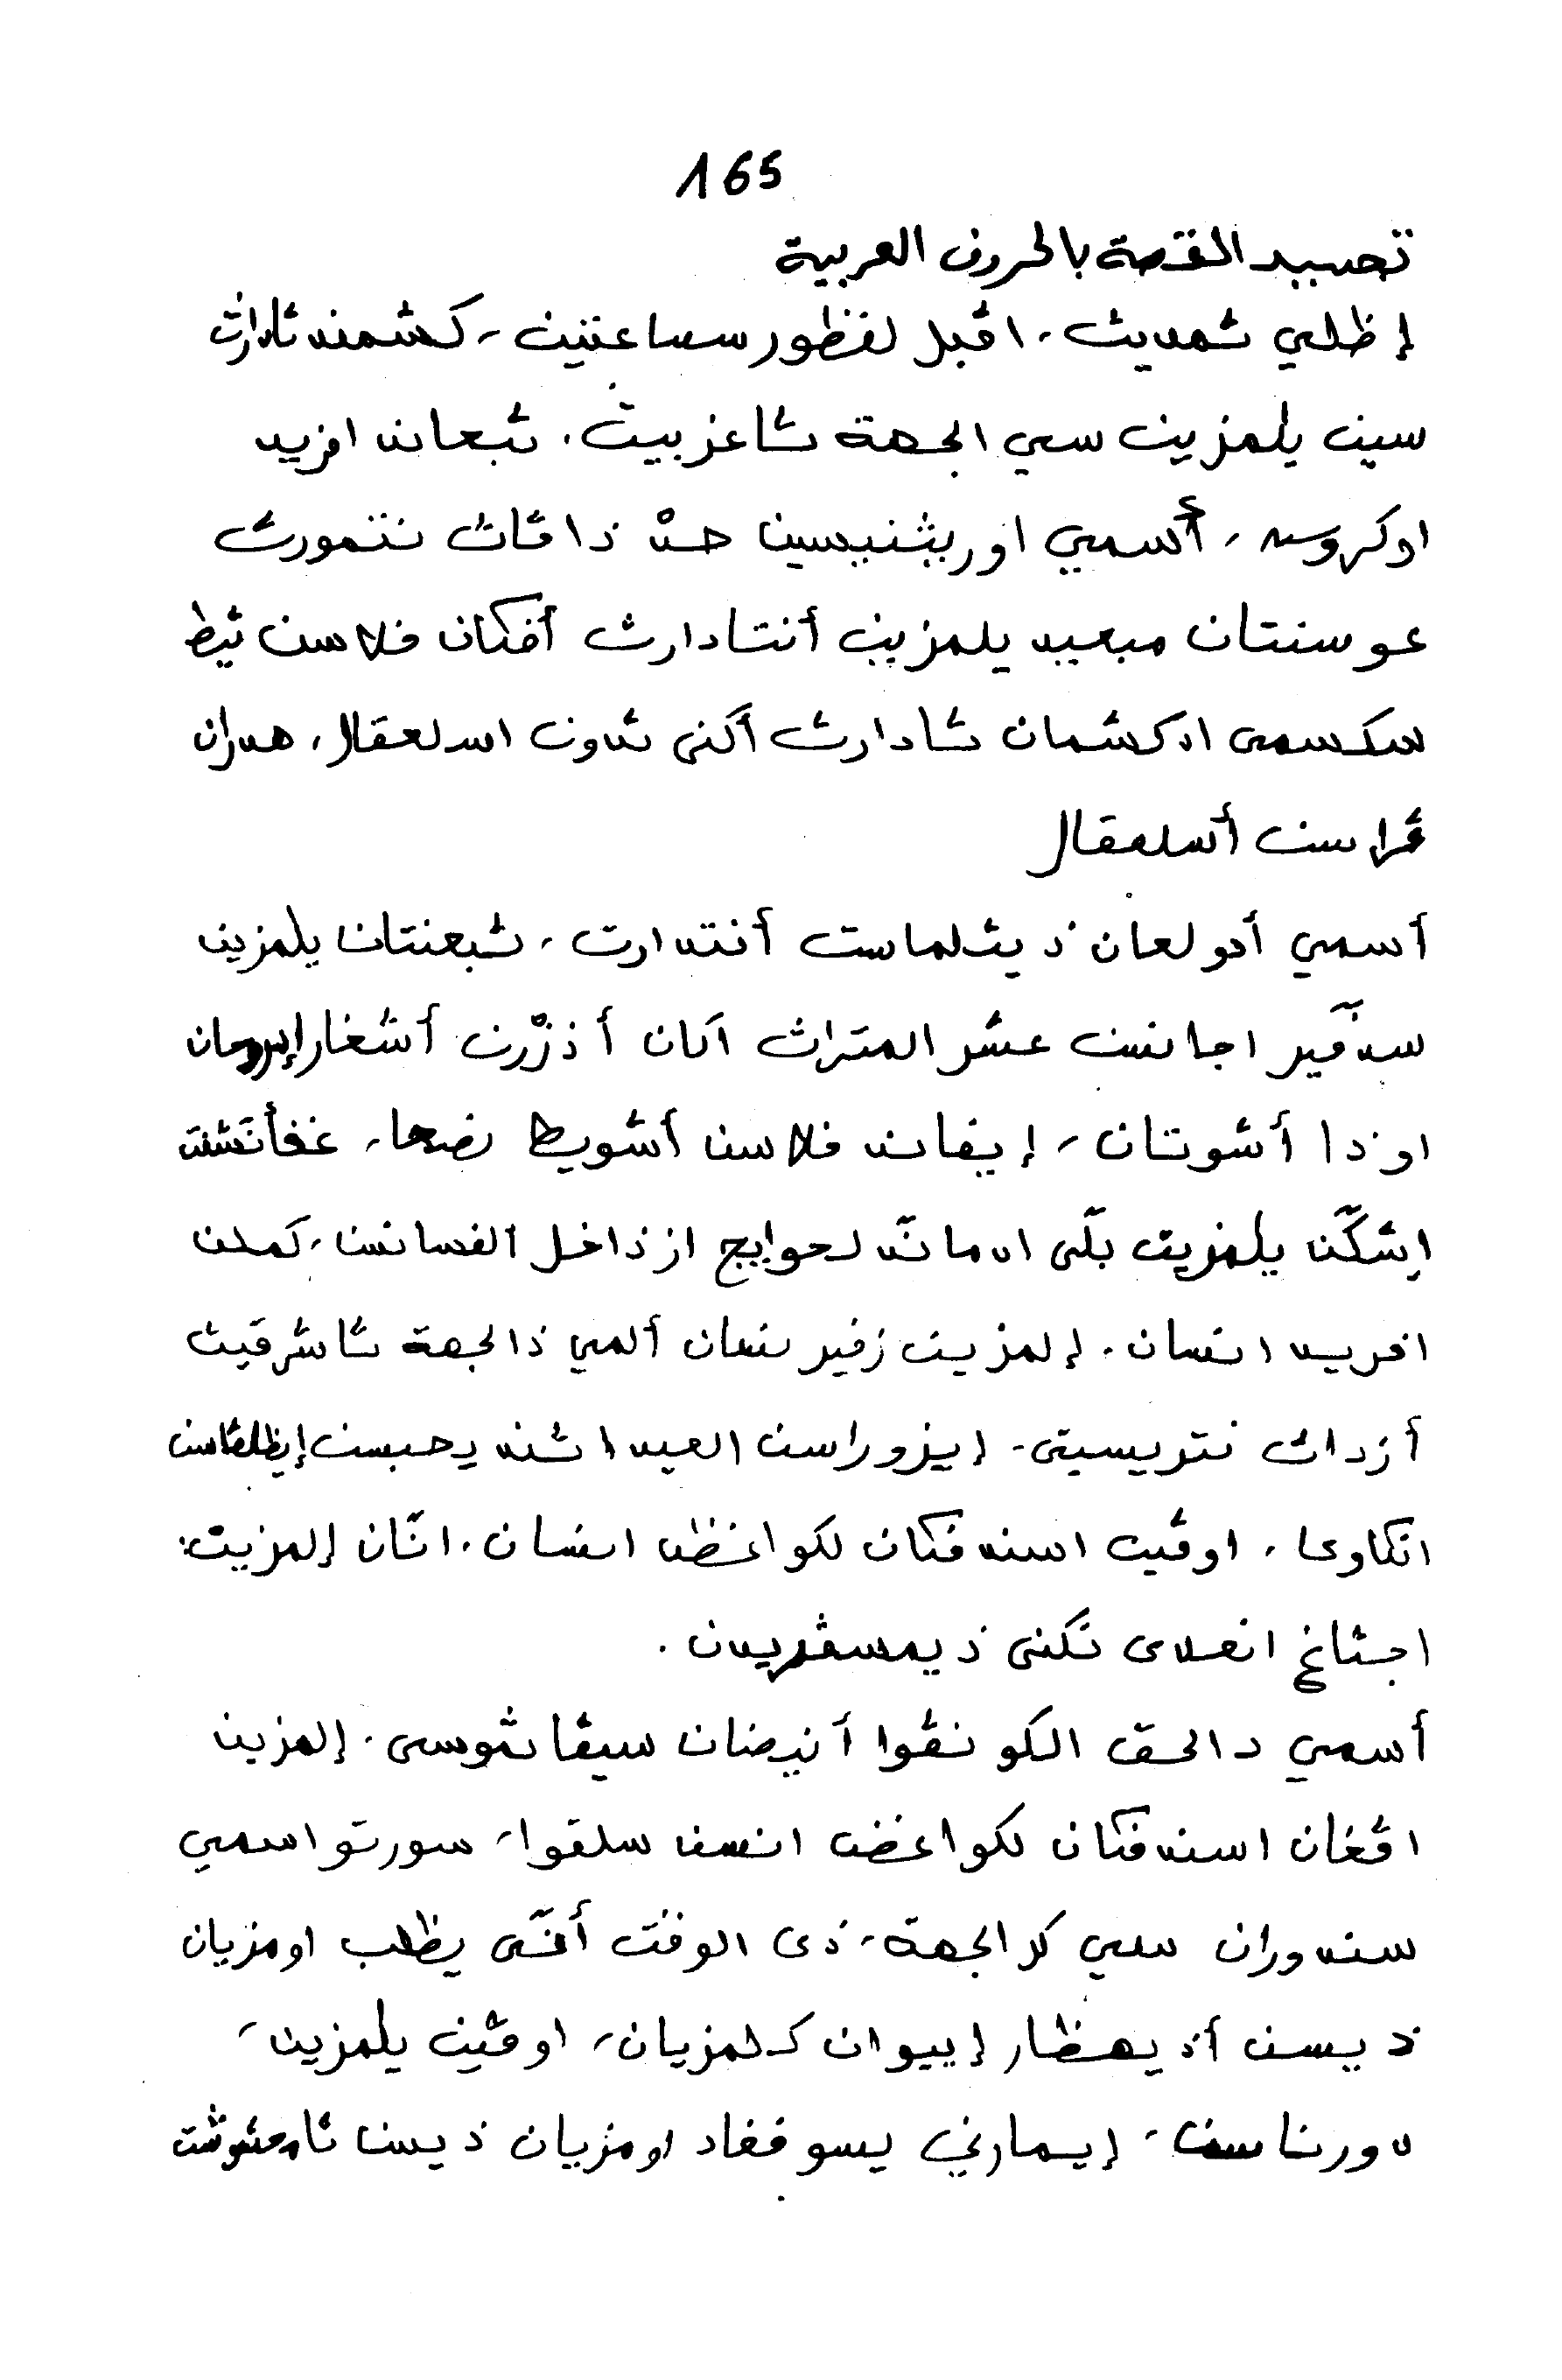 165
تجسيد القصة بالحروف العربية
إظلي ثمديث، اقبل لفظور سساعتين، كشمند ثادارث
سين يلمزين سي الجهة ثاغزبيث. تبعان افريد
اوكروس، أسمي اوريثنيسين حدْ ذاڨاث نتمورث
عوسنتان مبعيد يلمزين أنتادارث أفكان فلاسن ثيط
سكسمى ادكشمان ثادارث أكنى ثدون اسلعقال، هدران
ڨراسن أسلعقال
أسمي أدولعان ذيثلماست أنتدارث، ثبعنتان يلمزين
سدفير اجانسن عشر المتراث اكان أذزّرن أشغار إسروحان
اوذا أشوتان، إيفاند فلاسن أشويط نضحا، غفأنشت
إشكّن يلمزين بلّى ادمانّد لحوايج ازذاخل الفسانسن، كملن
افريد انسان. إلمزين زفير نسان ألمي ذالجهة ثاشرقيث
أزداث نتريسيتى. ايزوراسن العيد اثند يحبسن إيظلڨاسن
اتكاوى، اوڨين اسند فكان لكواغظ انسان، انّان إلمزين:
اجثاغ انعداى نكنى ذيمسڨريدن.
أسمي دالحق الكو نڨوا أنيضان سيڨاثوسى. إلمزين
اڨغان اسند فكان لكواغض انسن سلقوا، سورتو اسمي
سندوران سي كل الجهة، ذى الوقت أنّى يظلب اومزيان
ذيسن أذيهظار إييوان كلمزيان، اوڨين يلمزين،
دورناسن، إيمارني يسوففاد اومزيان ذيسن ثامعشوشت